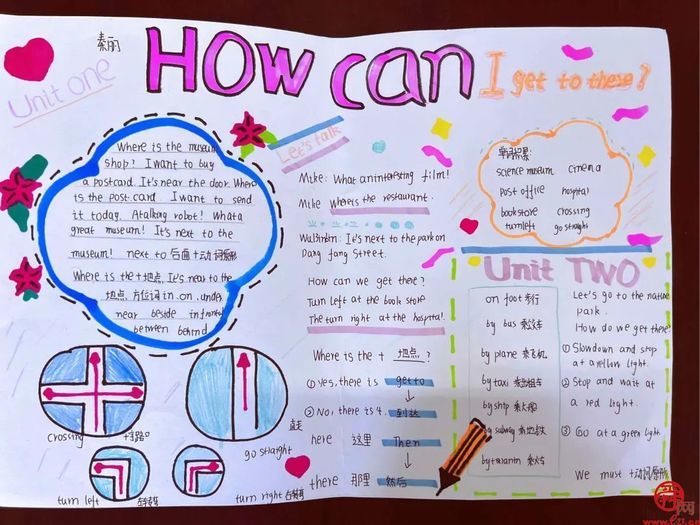 秦丽
Unit one
HOW can I get to there?
Where is the museum
shop? I want to buy
a postcard. It's near the door. Where
is the post card. I want to send
it today. A talking robot! What a
great museum! It's next to the
museum! next to 后面+动词原形
Where is the +地点. It's near to the
地点. 方位词 in. on. under.
near beside in front of
between behind
crossing 十字路口
go straight 直走
turn left 左转弯
turn right 右转弯
Let's talk
Mike: What an interesting film!
Mike Where is the restaurant.
It's next to the park on
Dong fang Street.
How can we get there?
Turn left at the book store
The turn right at the hospital.
Where is the + 地点?
① Yes, there is get to
② No, there is't. 到达
here 这里 Then
there 那里 然后
science museum cinema
post office hospital
bookstore crossing
turn left go straight
Unit TWO
on foot 步行
by bus 乘公交车
by plane 乘飞机
by taxi 乘出租车
by ship 乘大船
by subway 乘地铁
by 乘火车
Let's go to the nature
park.
How do we get there?
① Slowdown and stop
at a yellow light.
② Stop and wait at
a red light.
③ Go at a green light
We must +动词原形